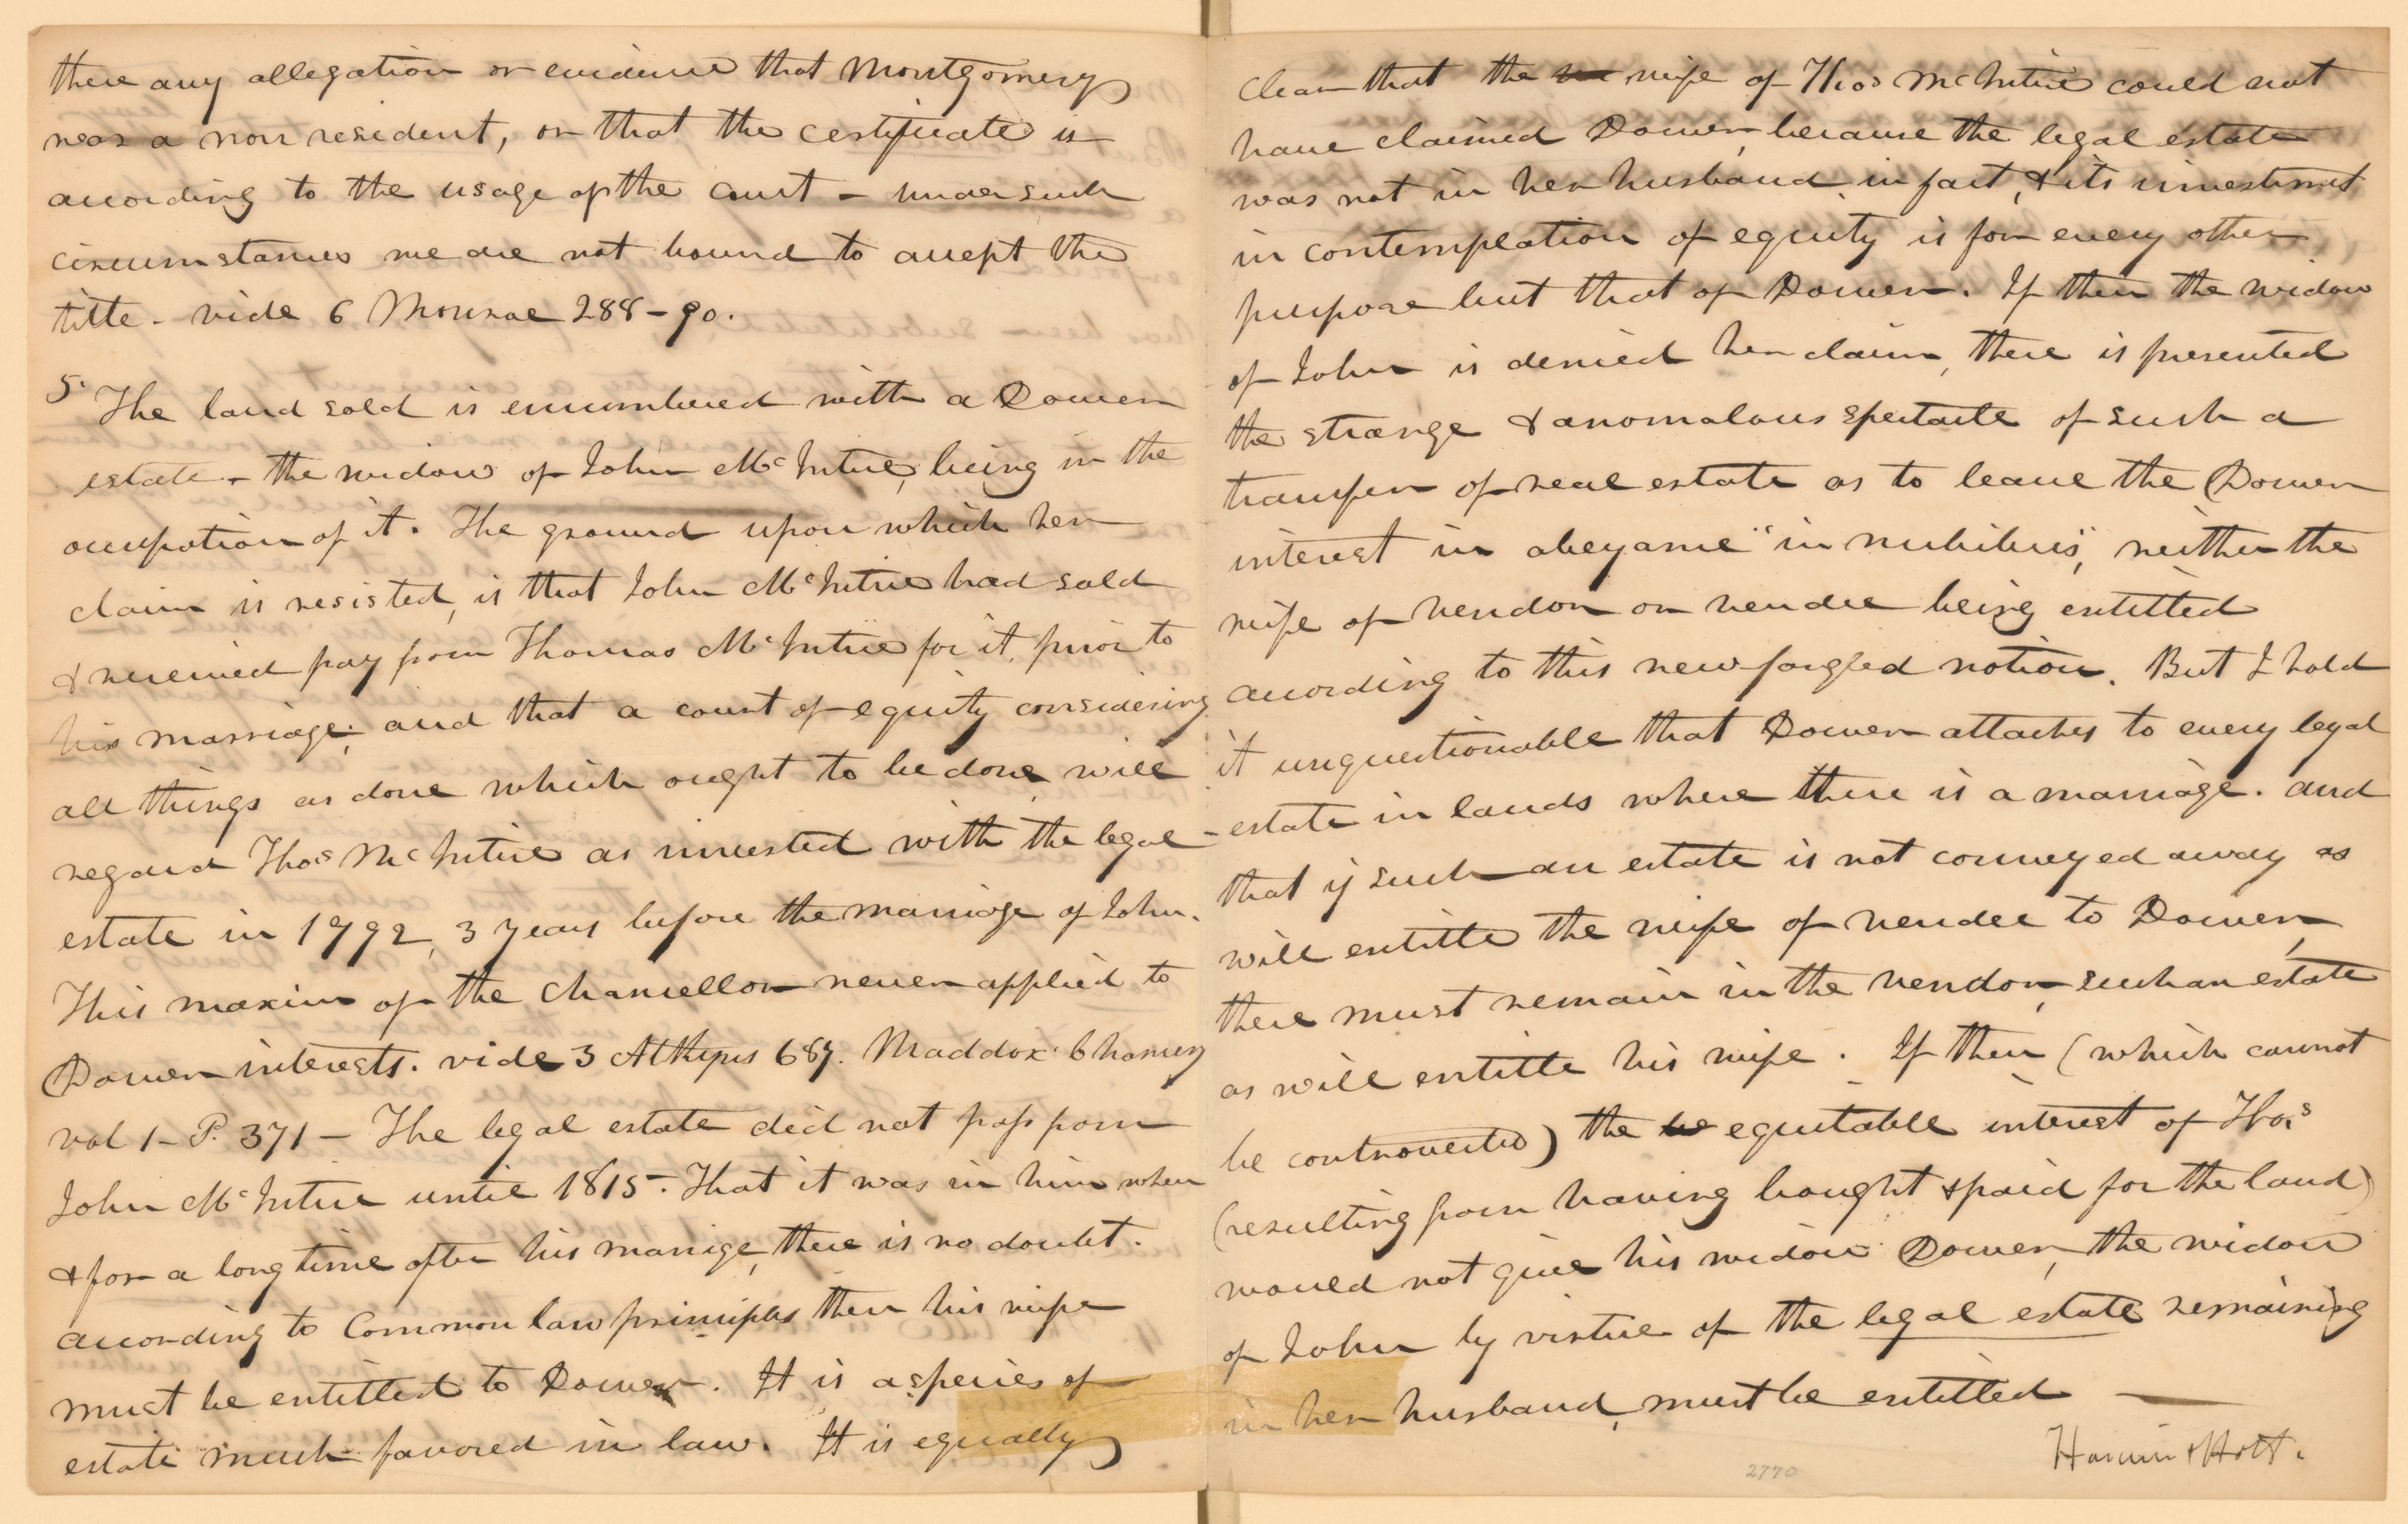 there any allegation or evidence that Montgomery
was a non resident, or that the certificate is
according to the usage of the court - under such
circumstances we are not bound to accept the
title - vide 6 Monroe 288-90.
5. The land sold is encumbered with a Dower
estate - the widow of John McIntire, being in the
occupation of it. The ground upon which her
claim is resisted, is that John McIntire had sold
& received pay from Thomas McIntire for it, prior to
his marriage; and that a court of equity considering
all things as done which ought to be done, will
regard Thos McIntire as invested with the legal
estate in 1792, 3 years before the marriage of John.
This maxim of the Chancellor never applied to
Dower interests. vide 3 Atkyns 687. Maddox Chancery
vol 1- P. 371 - The legal estate did not pass from
John McIntire until 1815-. That it was in him when
& for a long time after his marrige, there is no doubt.
according to Common law principles then his wife
must be entitled to Dower. It is a species of
estate much favored in law. It is equally
clear that the wife of Thos McIntire could not
have claimed Dower, because the legal estate
was not in her husband in fact, & its investment
in contemplation of equity is for every other
purpose but that of Dower. If then the widow
of John is denied her claim, there is presented
the strange & anomalous spectacle of such a
transfer of real estate as to leave the Dower
interest in abeyance "in nubibus", neither the
wife of vendor or vendee being entitled
according to this new fangled notion. But I hold
it unquestionable that Dower attaches to every legal
estate in lands where there is a marriage. and
that if such an estate is not conveyed away as
will entitle the wife of vendee to Dower,
there must remain in the vendor, such an estate
as will entitle his wife. If then (which cannot
be controverted) the equitable interest of Thos
(resulting from having bought & paid for the land)
would not give his widow Dower, the widow
of John by virtue of the legal estate remaining
in her husband, must be entitled -
2770